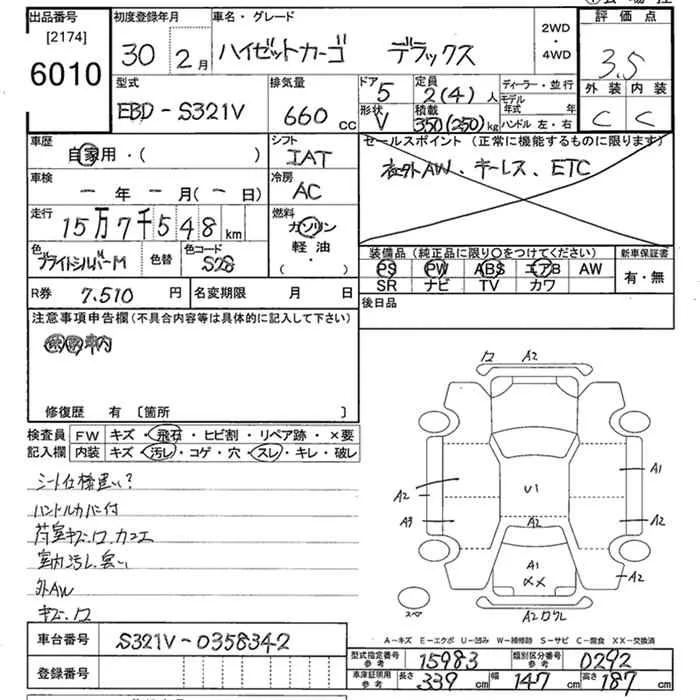 出品番号 初度登録年月 車名・グレード 2WD・4WD 評価点
[2174]
6010 30年 2月 ハイゼットカーゴ デラックス 3.5
型式 排気量 ドア 5 定員 2(4)人 ディーラー・並行 外装 内装
EBD-S321V 660cc 形状 V 積載 350(250)kg モデル年式 年 ハンドル 左・右 C C
車歴 自家用・( ) シフト IAT セールスポイント(正常に機能するものに限ります)
車検 ー年ー月(ー日) 冷房 AC 社外AW、キーレス、ETC
走行 15万7千548km 燃料 ガソリン 軽油・( )
色 ブライトシルバーM 色替 色コード S28
装備品(純正品に限り〇をつけてください) 新車保証書
PS PW ABS エアB AW 有・無
SR ナビ TV カワ
R券 7.510円 名変期限 月 日 後日品
注意事項申告欄(不具合内容等は具体的に記入して下さい)
修復歴 有 [箇所 ]
検査員記入欄 FW キズ・飛石・ヒビ割・リペア跡・×要
内装 キズ・汚レ・コゲ・穴・スレ・キレ・破レ
ハンドルカバー付
荷室キズ.ワ.カコエ
室内汚し臭い
外AW
キズ.ワ
ワ A2
A2 A1
U1
A3 A2 A2
A1
XX A2
スペア A2ワクレ
A-キズ E-エクボ U-凹み W-補修跡 S-サビ C-腐食 XX-交換済
車台番号 S321V-0358342
登録番号
型式指定番号 参考 15983 類別区分番号 参考 0292
車庫証明用 参考 長さ 339cm 幅 147cm 高さ 187cm